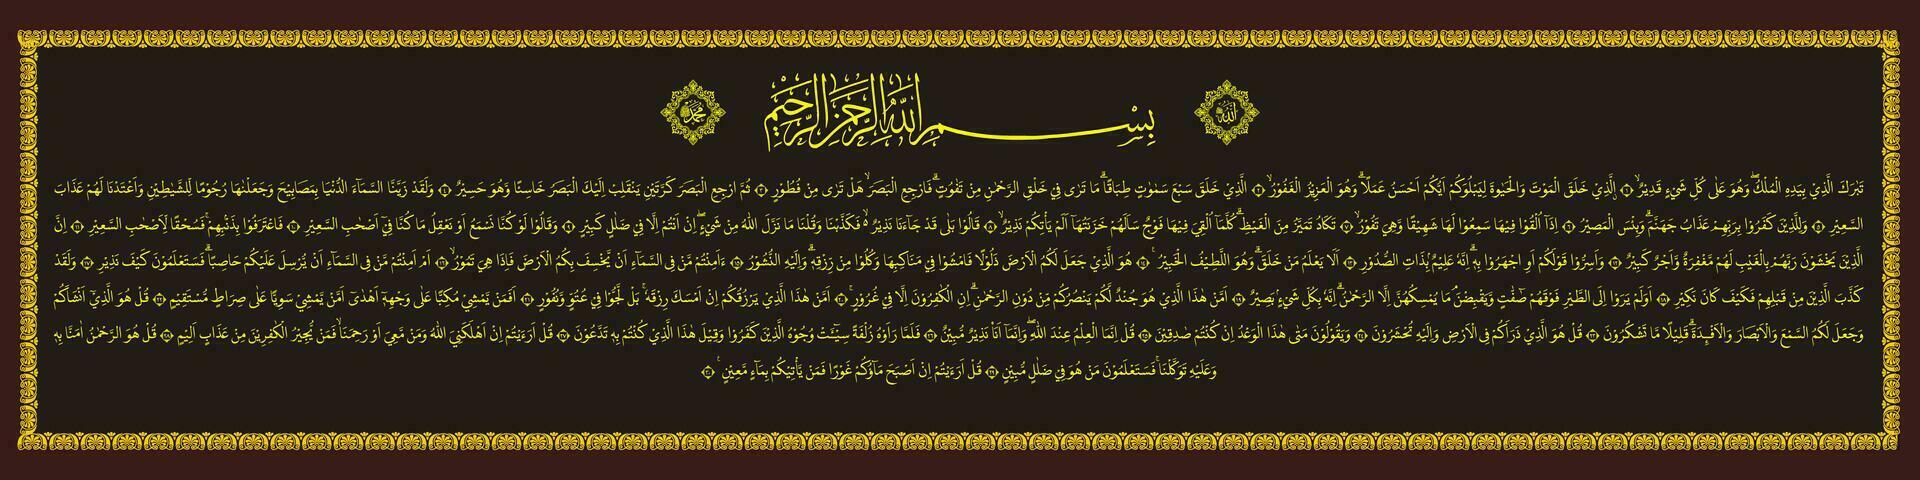 اللّٰه
بِسْمِ اللّٰهِ الرَّحْمٰنِ الرَّحِيْمِ
مُحَمَّد
تَبٰرَكَ الَّذِيْ بِيَدِهِ الْمُلْكُۖ وَهُوَ عَلٰى كُلِّ شَيْءٍ قَدِيْرٌۙ ۝١ ۨالَّذِيْ خَلَقَ الْمَوْتَ وَالْحَيٰوةَ لِيَبْلُوَكُمْ اَيُّكُمْ اَحْسَنُ عَمَلًاۗ وَهُوَ الْعَزِيْزُ الْغَفُوْرُۙ ۝٢ الَّذِيْ خَلَقَ سَبْعَ سَمٰوٰتٍ طِبَاقًاۗ مَا تَرٰى فِيْ خَلْقِ الرَّحْمٰنِ مِنْ تَفٰوُتٍۗ فَارْجِعِ الْبَصَرَۙ هَلْ تَرٰى مِنْ فُطُوْرٍ ۝٣ ثُمَّ ارْجِعِ الْبَصَرَ كَرَّتَيْنِ يَنْقَلِبْ اِلَيْكَ الْبَصَرُ خَاسِئًا وَّهُوَ حَسِيْرٌ ۝٤ وَلَقَدْ زَيَّنَّا السَّمَاۤءَ الدُّنْيَا بِمَصَابِيْحَ وَجَعَلْنٰهَا رُجُوْمًا لِّلشَّيٰطِيْنِ وَاَعْتَدْنَا لَهُمْ عَذَابَ
السَّعِيْرِ ۝٥ وَلِلَّذِيْنَ كَفَرُوْا بِرَبِّهِمْ عَذَابُ جَهَنَّمَۗ وَبِئْسَ الْمَصِيْرُ ۝٦ اِذَآ اُلْقُوْا فِيْهَا سَمِعُوْا لَهَا شَهِيْقًا وَّهِيَ تَفُوْرُۙ ۝٧ تَكَادُ تَمَيَّزُ مِنَ الْغَيْظِۗ كُلَّمَآ اُلْقِيَ فِيْهَا فَوْجٌ سَاَلَهُمْ خَزَنَتُهَآ اَلَمْ يَأْتِكُمْ نَذِيْرٌۙ ۝٨ قَالُوْا بَلٰى قَدْ جَاۤءَنَا نَذِيْرٌ ەۙ فَكَذَّبْنَا وَقُلْنَا مَا نَزَّلَ اللّٰهُ مِنْ شَيْءٍۖ اِنْ اَنْتُمْ اِلَّا فِيْ ضَلٰلٍ كَبِيْرٍ ۝٩ وَقَالُوْا لَوْ كُنَّا نَسْمَعُ اَوْ نَعْقِلُ مَا كُنَّا فِيْٓ اَصْحٰبِ السَّعِيْرِ ۝١٠ فَاعْتَرَفُوْا بِذَنْۢبِهِمْۚ فَسُحْقًا لِّاَصْحٰبِ السَّعِيْرِ ۝١١ اِنَّ
الَّذِيْنَ يَخْشَوْنَ رَبَّهُمْ بِالْغَيْبِ لَهُمْ مَّغْفِرَةٌ وَّاَجْرٌ كَبِيْرٌ ۝١٢ وَاَسِرُّوْا قَوْلَكُمْ اَوِ اجْهَرُوْا بِهٖۗ اِنَّهٗ عَلِيْمٌۢ بِذَاتِ الصُّدُوْرِ ۝١٣ اَلَا يَعْلَمُ مَنْ خَلَقَۗ وَهُوَ اللَّطِيْفُ الْخَبِيْرُ ۝١٤ هُوَ الَّذِيْ جَعَلَ لَكُمُ الْاَرْضَ ذَلُوْلًا فَامْشُوْا فِيْ مَنَاكِبِهَا وَكُلُوْا مِنْ رِّزْقِهٖۗ وَاِلَيْهِ النُّشُوْرُ ۝١٥ ءَاَمِنْتُمْ مَّنْ فِى السَّمَاۤءِ اَنْ يَّخْسِفَ بِكُمُ الْاَرْضَ فَاِذَا هِيَ تَمُوْرُۙ ۝١٦ اَمْ اَمِنْتُمْ مَّنْ فِى السَّمَاۤءِ اَنْ يُّرْسِلَ عَلَيْكُمْ حَاصِبًاۗ فَسَتَعْلَمُوْنَ كَيْفَ نَذِيْرِ ۝١٧ وَلَقَدْ
كَذَّبَ الَّذِيْنَ مِنْ قَبْلِهِمْ فَكَيْفَ كَانَ نَكِيْرِ ۝١٨ اَوَلَمْ يَرَوْا اِلَى الطَّيْرِ فَوْقَهُمْ صٰۤفّٰتٍ وَّيَقْبِضْنَۘ مَا يُمْسِكُهُنَّ اِلَّا الرَّحْمٰنُۗ اِنَّهٗ بِكُلِّ شَيْءٍۢ بَصِيْرٌ ۝١٩ اَمَّنْ هٰذَا الَّذِيْ هُوَ جُنْدٌ لَّكُمْ يَنْصُرُكُمْ مِّنْ دُوْنِ الرَّحْمٰنِۗ اِنِ الْكٰفِرُوْنَ اِلَّا فِيْ غُرُوْرٍۚ ۝٢٠ اَمَّنْ هٰذَا الَّذِيْ يَرْزُقُكُمْ اِنْ اَمْسَكَ رِزْقَهٗۚ بَلْ لَّجُّوْا فِيْ عُتُوٍّ وَّنُفُوْرٍ ۝٢١ اَفَمَنْ يَّمْشِيْ مُكِبًّا عَلٰى وَجْهِهٖٓ اَهْدٰىٓ اَمَّنْ يَّمْشِيْ سَوِيًّا عَلٰى صِرَاطٍ مُّسْتَقِيْمٍ ۝٢٢ قُلْ هُوَ الَّذِيْٓ اَنْشَاَكُمْ
وَجَعَلَ لَكُمُ السَّمْعَ وَالْاَبْصَارَ وَالْاَفْـِٕدَةَۗ قَلِيْلًا مَّا تَشْكُرُوْنَ ۝٢٣ قُلْ هُوَ الَّذِيْ ذَرَاَكُمْ فِى الْاَرْضِ وَاِلَيْهِ تُحْشَرُوْنَ ۝٢٤ وَيَقُوْلُوْنَ مَتٰى هٰذَا الْوَعْدُ اِنْ كُنْتُمْ صٰدِقِيْنَ ۝٢٥ قُلْ اِنَّمَا الْعِلْمُ عِنْدَ اللّٰهِۖ وَاِنَّمَآ اَنَا۠ نَذِيْرٌ مُّبِيْنٌ ۝٢٦ فَلَمَّا رَاَوْهُ زُلْفَةً سِيْۤـَٔتْ وُجُوْهُ الَّذِيْنَ كَفَرُوْا وَقِيْلَ هٰذَا الَّذِيْ كُنْتُمْ بِهٖ تَدَّعُوْنَ ۝٢٧ قُلْ اَرَءَيْتُمْ اِنْ اَهْلَكَنِيَ اللّٰهُ وَمَنْ مَّعِيَ اَوْ رَحِمَنَاۙ فَمَنْ يُّجِيْرُ الْكٰفِرِيْنَ مِنْ عَذَابٍ اَلِيْمٍ ۝٢٨ قُلْ هُوَ الرَّحْمٰنُ اٰمَنَّا بِهٖ
وَعَلَيْهِ تَوَكَّلْنَاۚ فَسَتَعْلَمُوْنَ مَنْ هُوَ فِيْ ضَلٰلٍ مُّبِيْنٍ ۝٢٩ قُلْ اَرَءَيْتُمْ اِنْ اَصْبَحَ مَاۤؤُكُمْ غَوْرًا فَمَنْ يَّأْتِيْكُمْ بِمَاۤءٍ مَّعِيْنٍ ۝٣٠